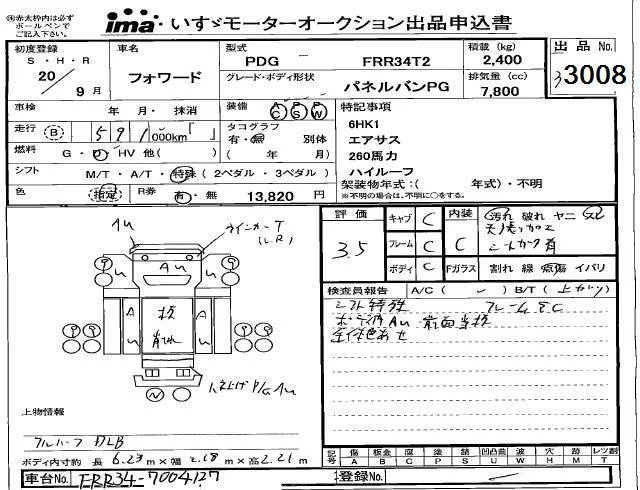 ㊟赤太枠内は必ず
ボールペンで
ご記入下さい。
ima いすゞモーターオークション出品申込書
初度登録
S ・ H ・ R
20/9月
車名
フォワード
型式
PDG FRR34T2
積載 (kg)
2,400
出品 No.
3008
グレード・ボディ形状
パネルバンPG
排気量 (cc)
7,800
車検 年 月・ 抹消
装備 AC PS PW
特記事項
走行 B 591,000km「 」
タコグラフ
有・無 別体
6HK1
エアサス
燃料 G・D・HV 他( )
( 年 月)
260馬力
シフト M/T・A/T・特殊 (2ペダル・3ペダル)
ハイルーフ
色 指定 R券 有・無 13,820 円
架装物年式:( 年式)・不明
※不明の場合は、不明に○をする。
評価
3.5
キャブ C
フレーム C
ボディ C
内装
C
Fガラス
汚れ 破れ ヤニ
割れ 線 点傷 イバリ
ウインカーT
(L.R)
AU
検査員報告 A/C ( ) B/T (
シフト特殊 フレームEC
ボディ内AU
全体色あせ
上物情報
アルバーフ DLB
ボディ内寸約 長 6.23m×幅 2.18m×高 2.21m
記号
傷 板金 腐 塗 サビ 凹凸曲 波 穴 跡 交 レツ割
A B C P S U W H M T
車台No. FRR34-7004127
登録No.